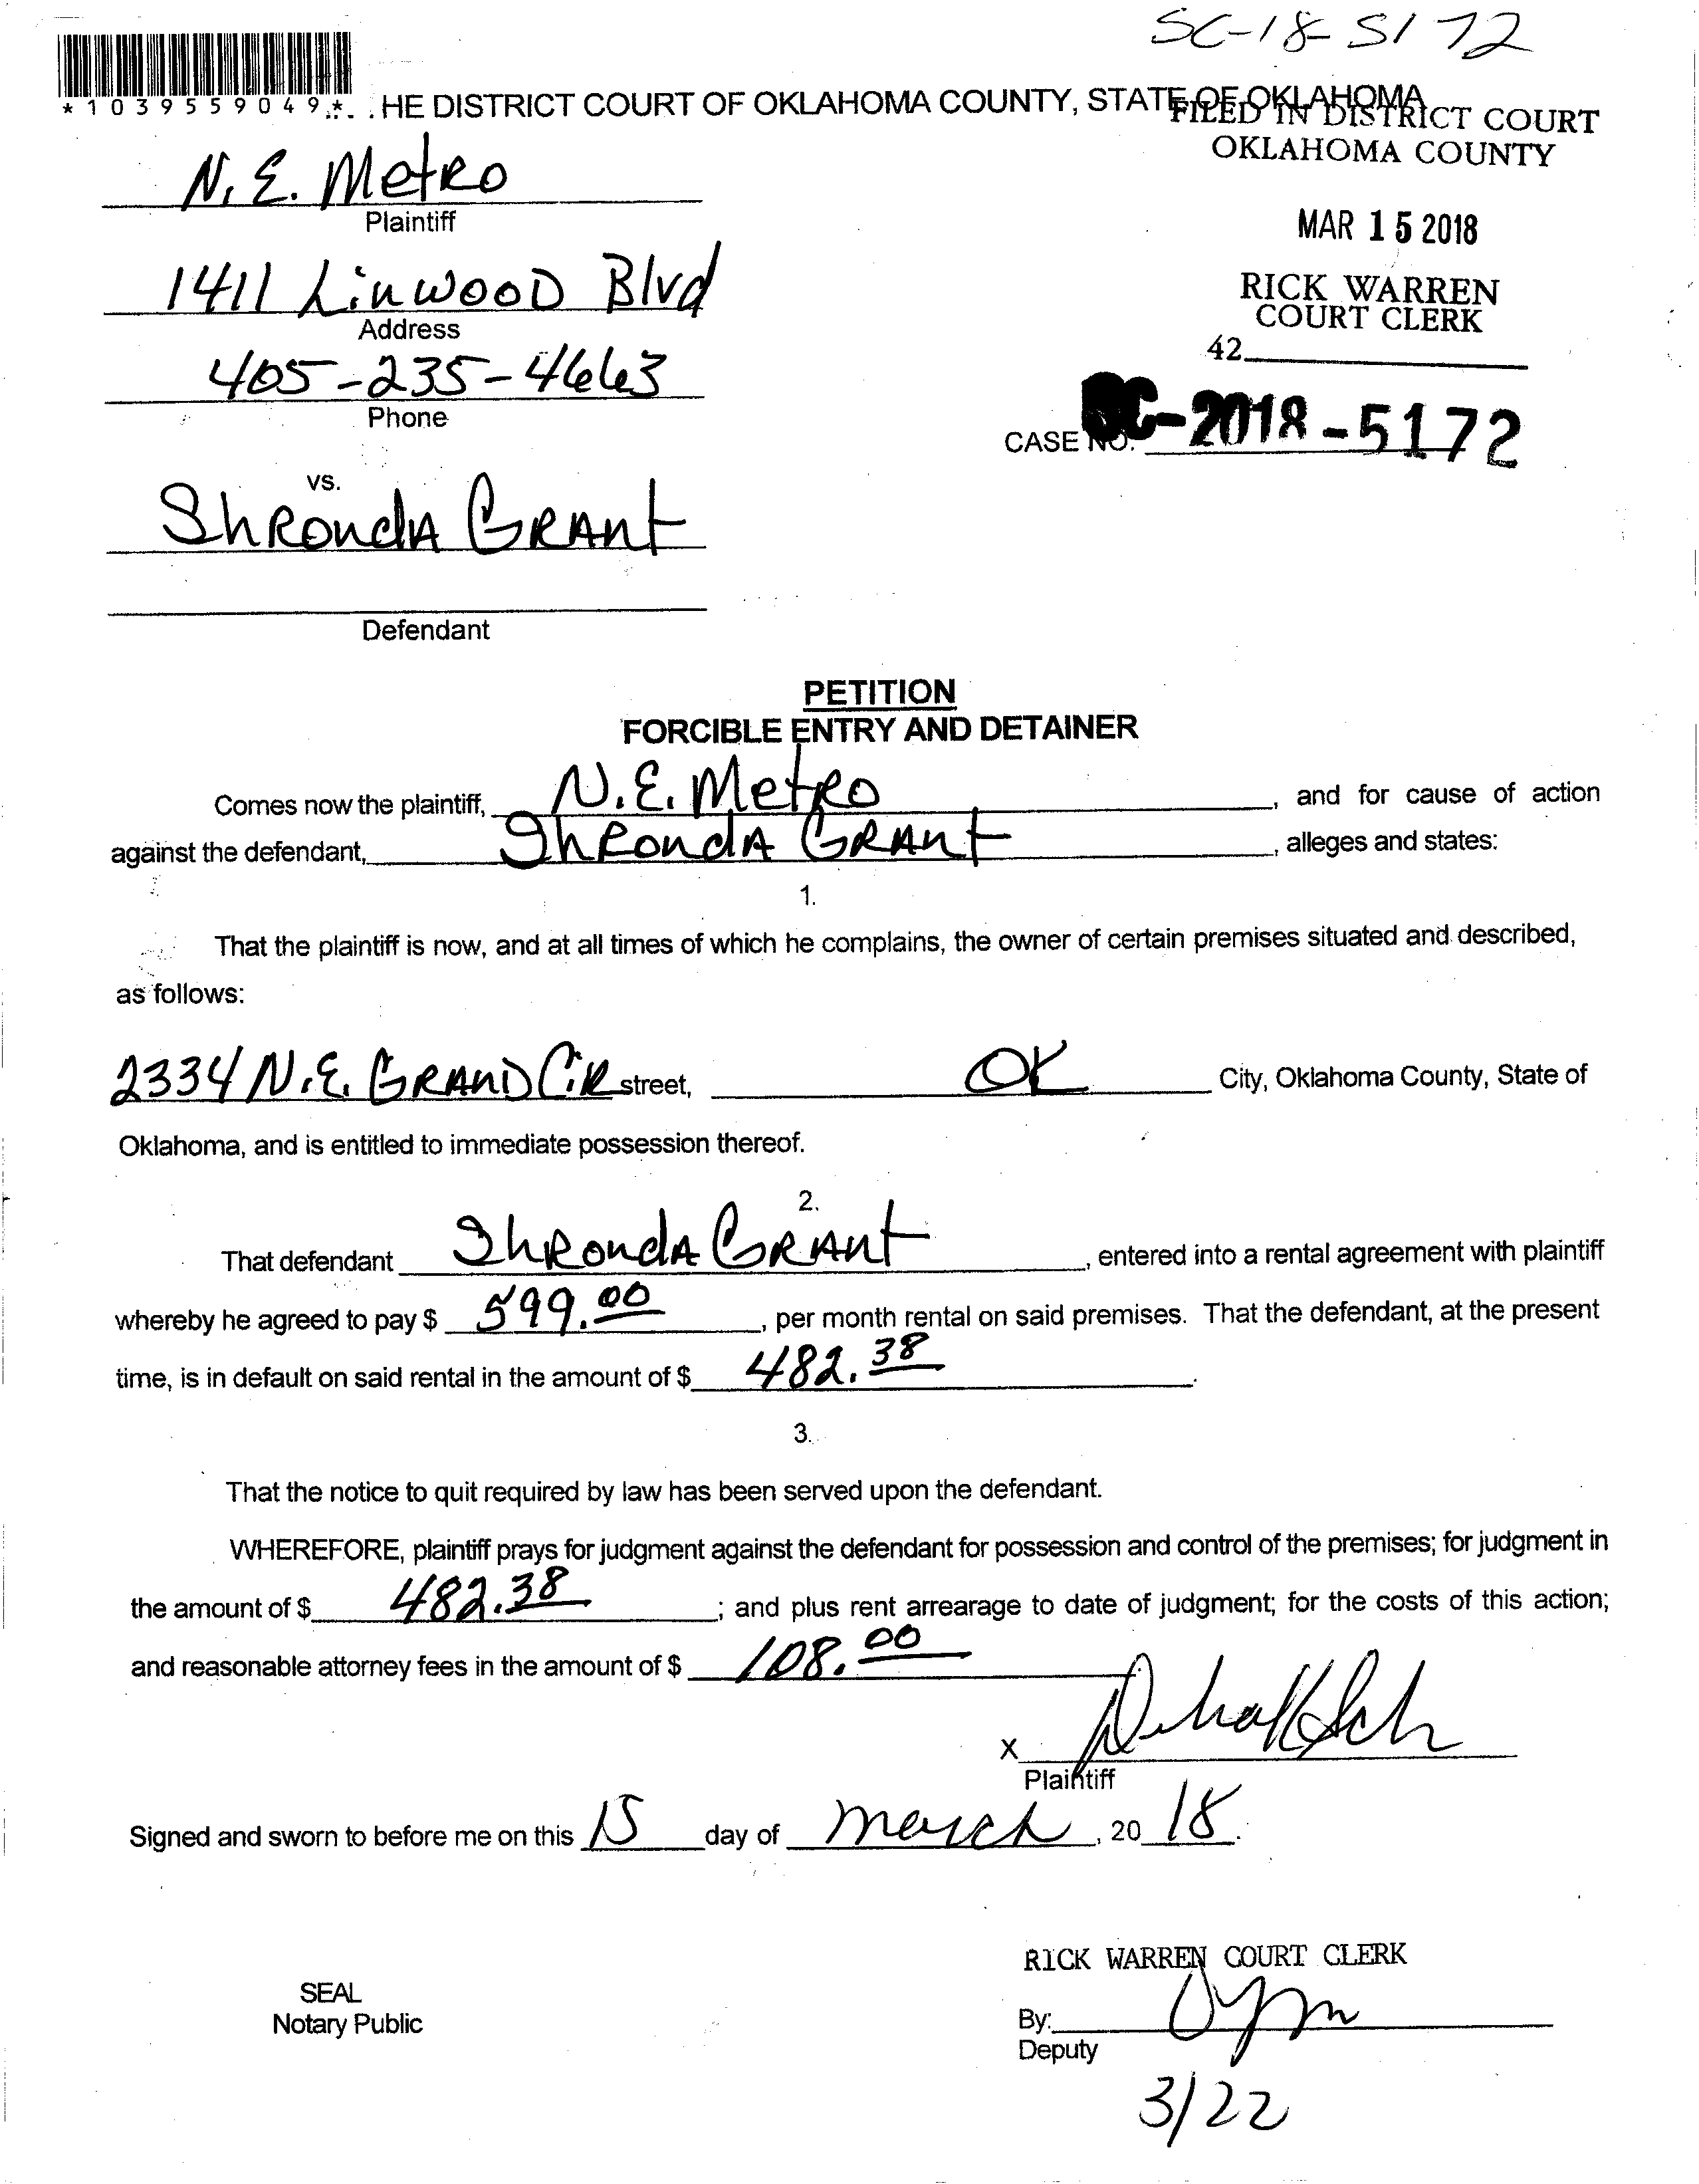 SC-18-5172
*1039559049*
HE DISTRICT COURT OF OKLAHOMA COUNTY, STATE OF OKLAHOMA
FILED IN DISTRICT COURT
OKLAHOMA COUNTY
N.E. Metro
Plaintiff
MAR 15 2018
1411 Linwood Blvd
Address
RICK WARREN
COURT CLERK
405-235-4663
Phone
42
CASE NO. SC-2018-5172
vs.
Shronda Grant
Defendant
PETITION
FORCIBLE ENTRY AND DETAINER
Comes now the plaintiff, N.E. Metro, and for cause of action
against the defendant, Shronda Grant, alleges and states:
1.
That the plaintiff is now, and at all times of which he complains, the owner of certain premises situated and described,
as follows:
2334 N.E. GRAND CiR street, OK City, Oklahoma County, State of
Oklahoma, and is entitled to immediate possession thereof.
2.
That defendant Shronda Grant, entered into a rental agreement with plaintiff
whereby he agreed to pay $ 599.00, per month rental on said premises. That the defendant, at the present
time, is in default on said rental in the amount of $ 482.38.
3.
That the notice to quit required by law has been served upon the defendant.
WHEREFORE, plaintiff prays for judgment against the defendant for possession and control of the premises; for judgment in
the amount of $ 482.38; and plus rent arrearage to date of judgment; for the costs of this action;
and reasonable attorney fees in the amount of $ 108.00
X
Plaintiff
Signed and sworn to before me on this 15 day of march, 20 18.
RICK WARREN COURT CLERK
SEAL
Notary Public
By:
Deputy
3/22